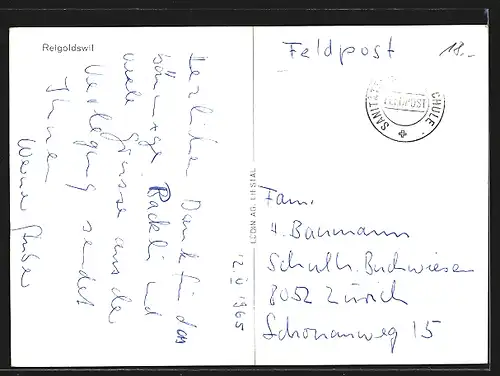 Reigoldswil
Feldpost
18.-
SANITÄTS CHULE
FELDPOST
12. V 1965
Herzlichen Dank für das
Päckli und
viele Grüsse aus der
Verlegung sendet
Ihnen
Werner Gruber
LÜDIN AG. LIESTAL
Fam.
H. Baumann
Schulh. Buchwiesen
8052 Zürich
Schönauweg 15